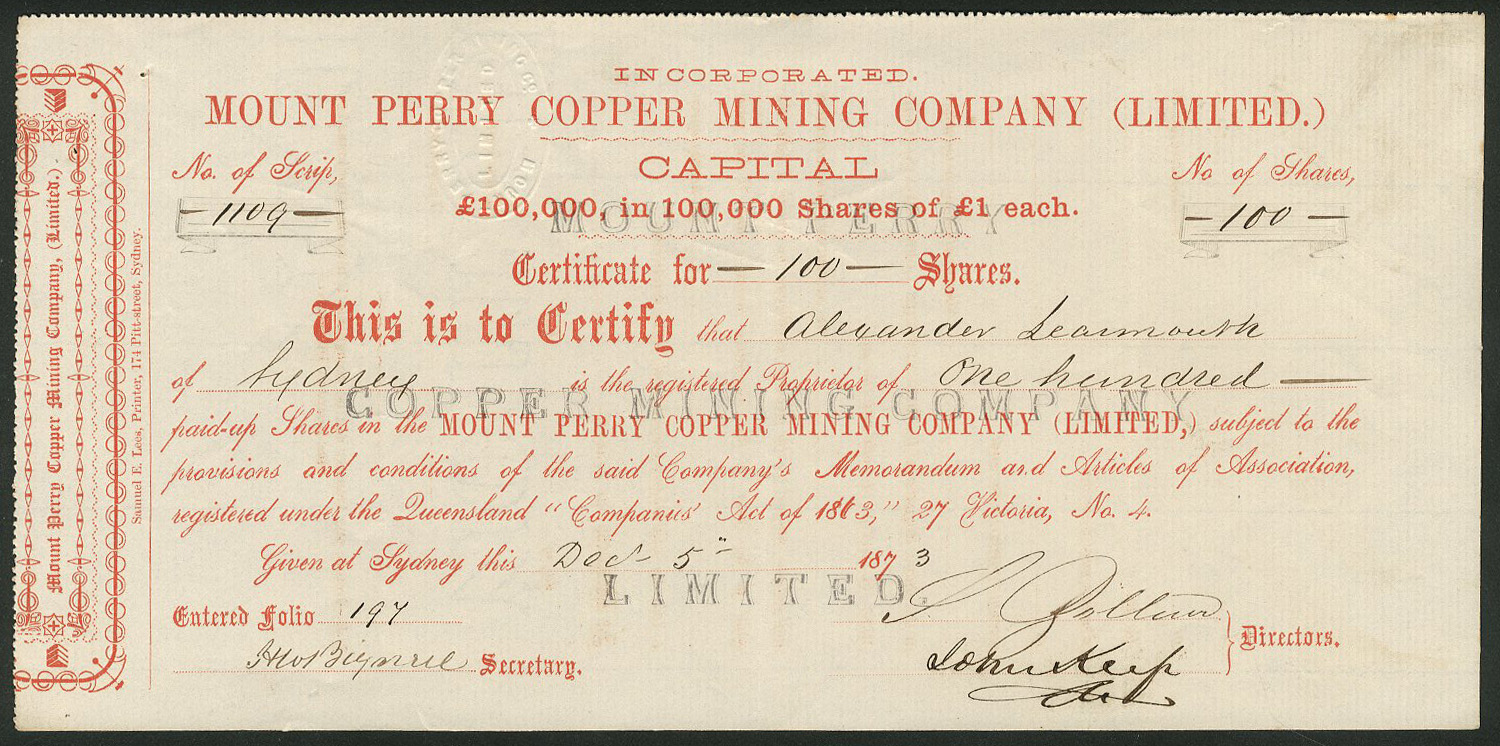 INCORPORATED.
MOUNT PERRY COPPER MINING COMPANY (LIMITED.)
No. of Scrip,
CAPITAL
No of Shares,
—1109—
£100,000, in 100,000 Shares of £1 each.
—100—
MOUNT PERRY
Certificate for —100— Shares.
This is to Certify that Alexander Learmouth
of Sydney is the registered Proprietor of One hundred —
COPPER MINING COMPANY
paid-up Shares in the MOUNT PERRY COPPER MINING COMPANY (LIMITED,) subject to the
provisions and conditions of the said Company's Memorandum and Articles of Association,
registered under the Queensland "Companies' Act of 1863," 27 Victoria, No. 4.
Given at Sydney this Dec 5" 1873
LIMITED.
Entered Folio 197
Secretary.
John Keep
Directors.
Mount Perry Copper Mining Company, (Limited.)
Samuel E. Lees, Printer, 174 Pitt-street, Sydney.